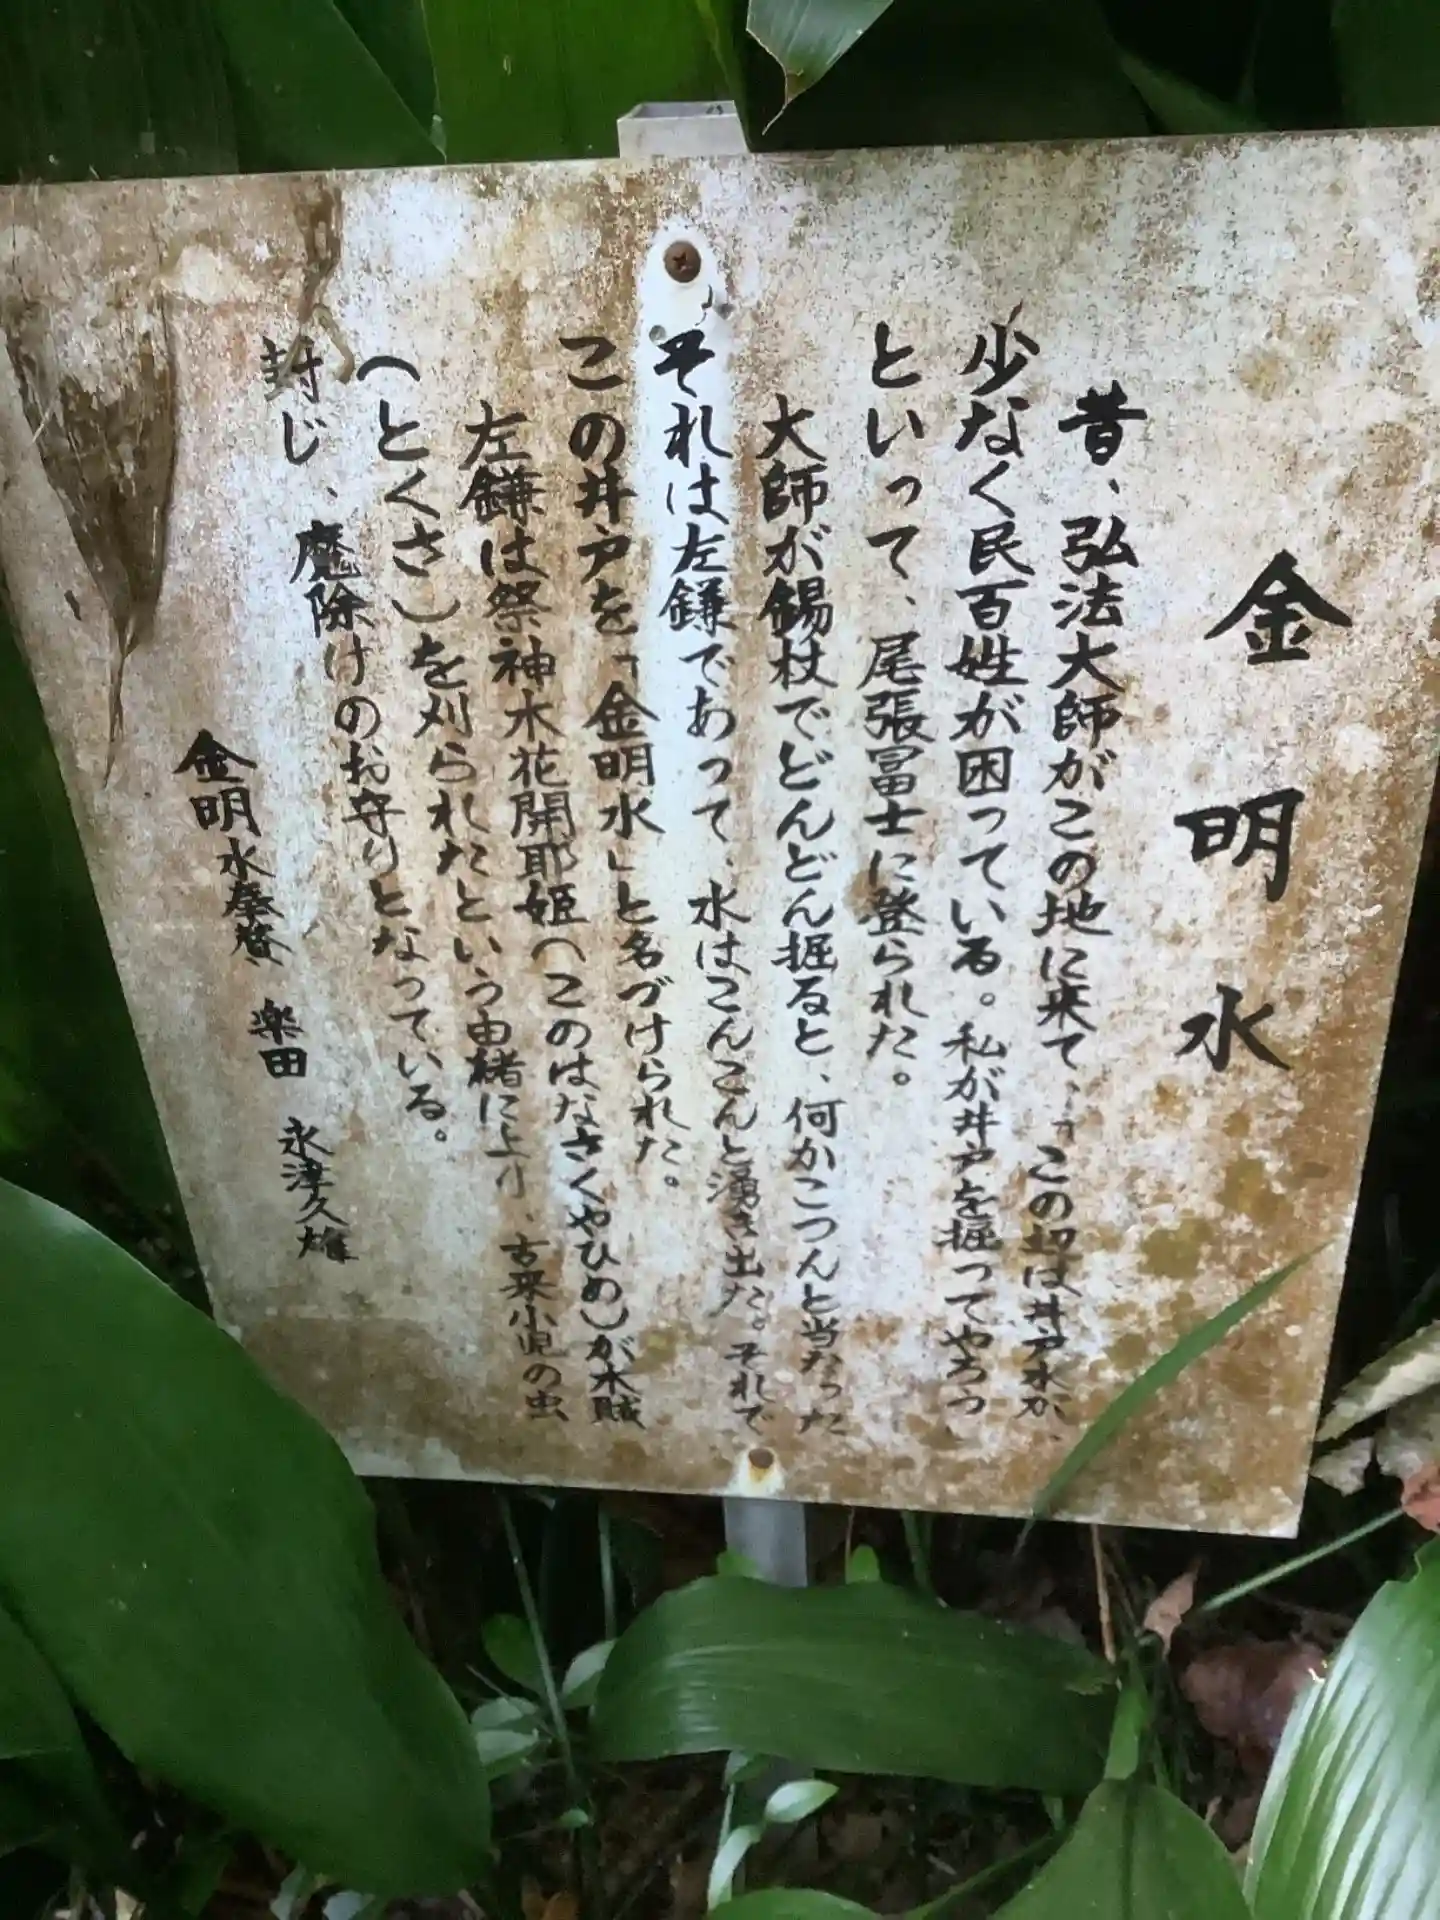 金明水
昔、弘法大師がこの地に来て、「この辺は井戸水が、
少なく民百姓が困っている。私が井戸を掘ってやろう
といって、尾張冨士に登られた。
大師が錫杖でどんどん掘ると、何かこつんと当たった
それは左鎌であって、水はこんこんと湧き出た。それで
この井戸を「金明水」と名づけられた。
左鎌は祭神木花開耶姫(このはなさくやひめ)が木賊
(とくさ)を刈られたという由緒により、古来小児の虫
封じ、魔除けのお守りとなっている。
金明水奉賛 楽田 永津久雄